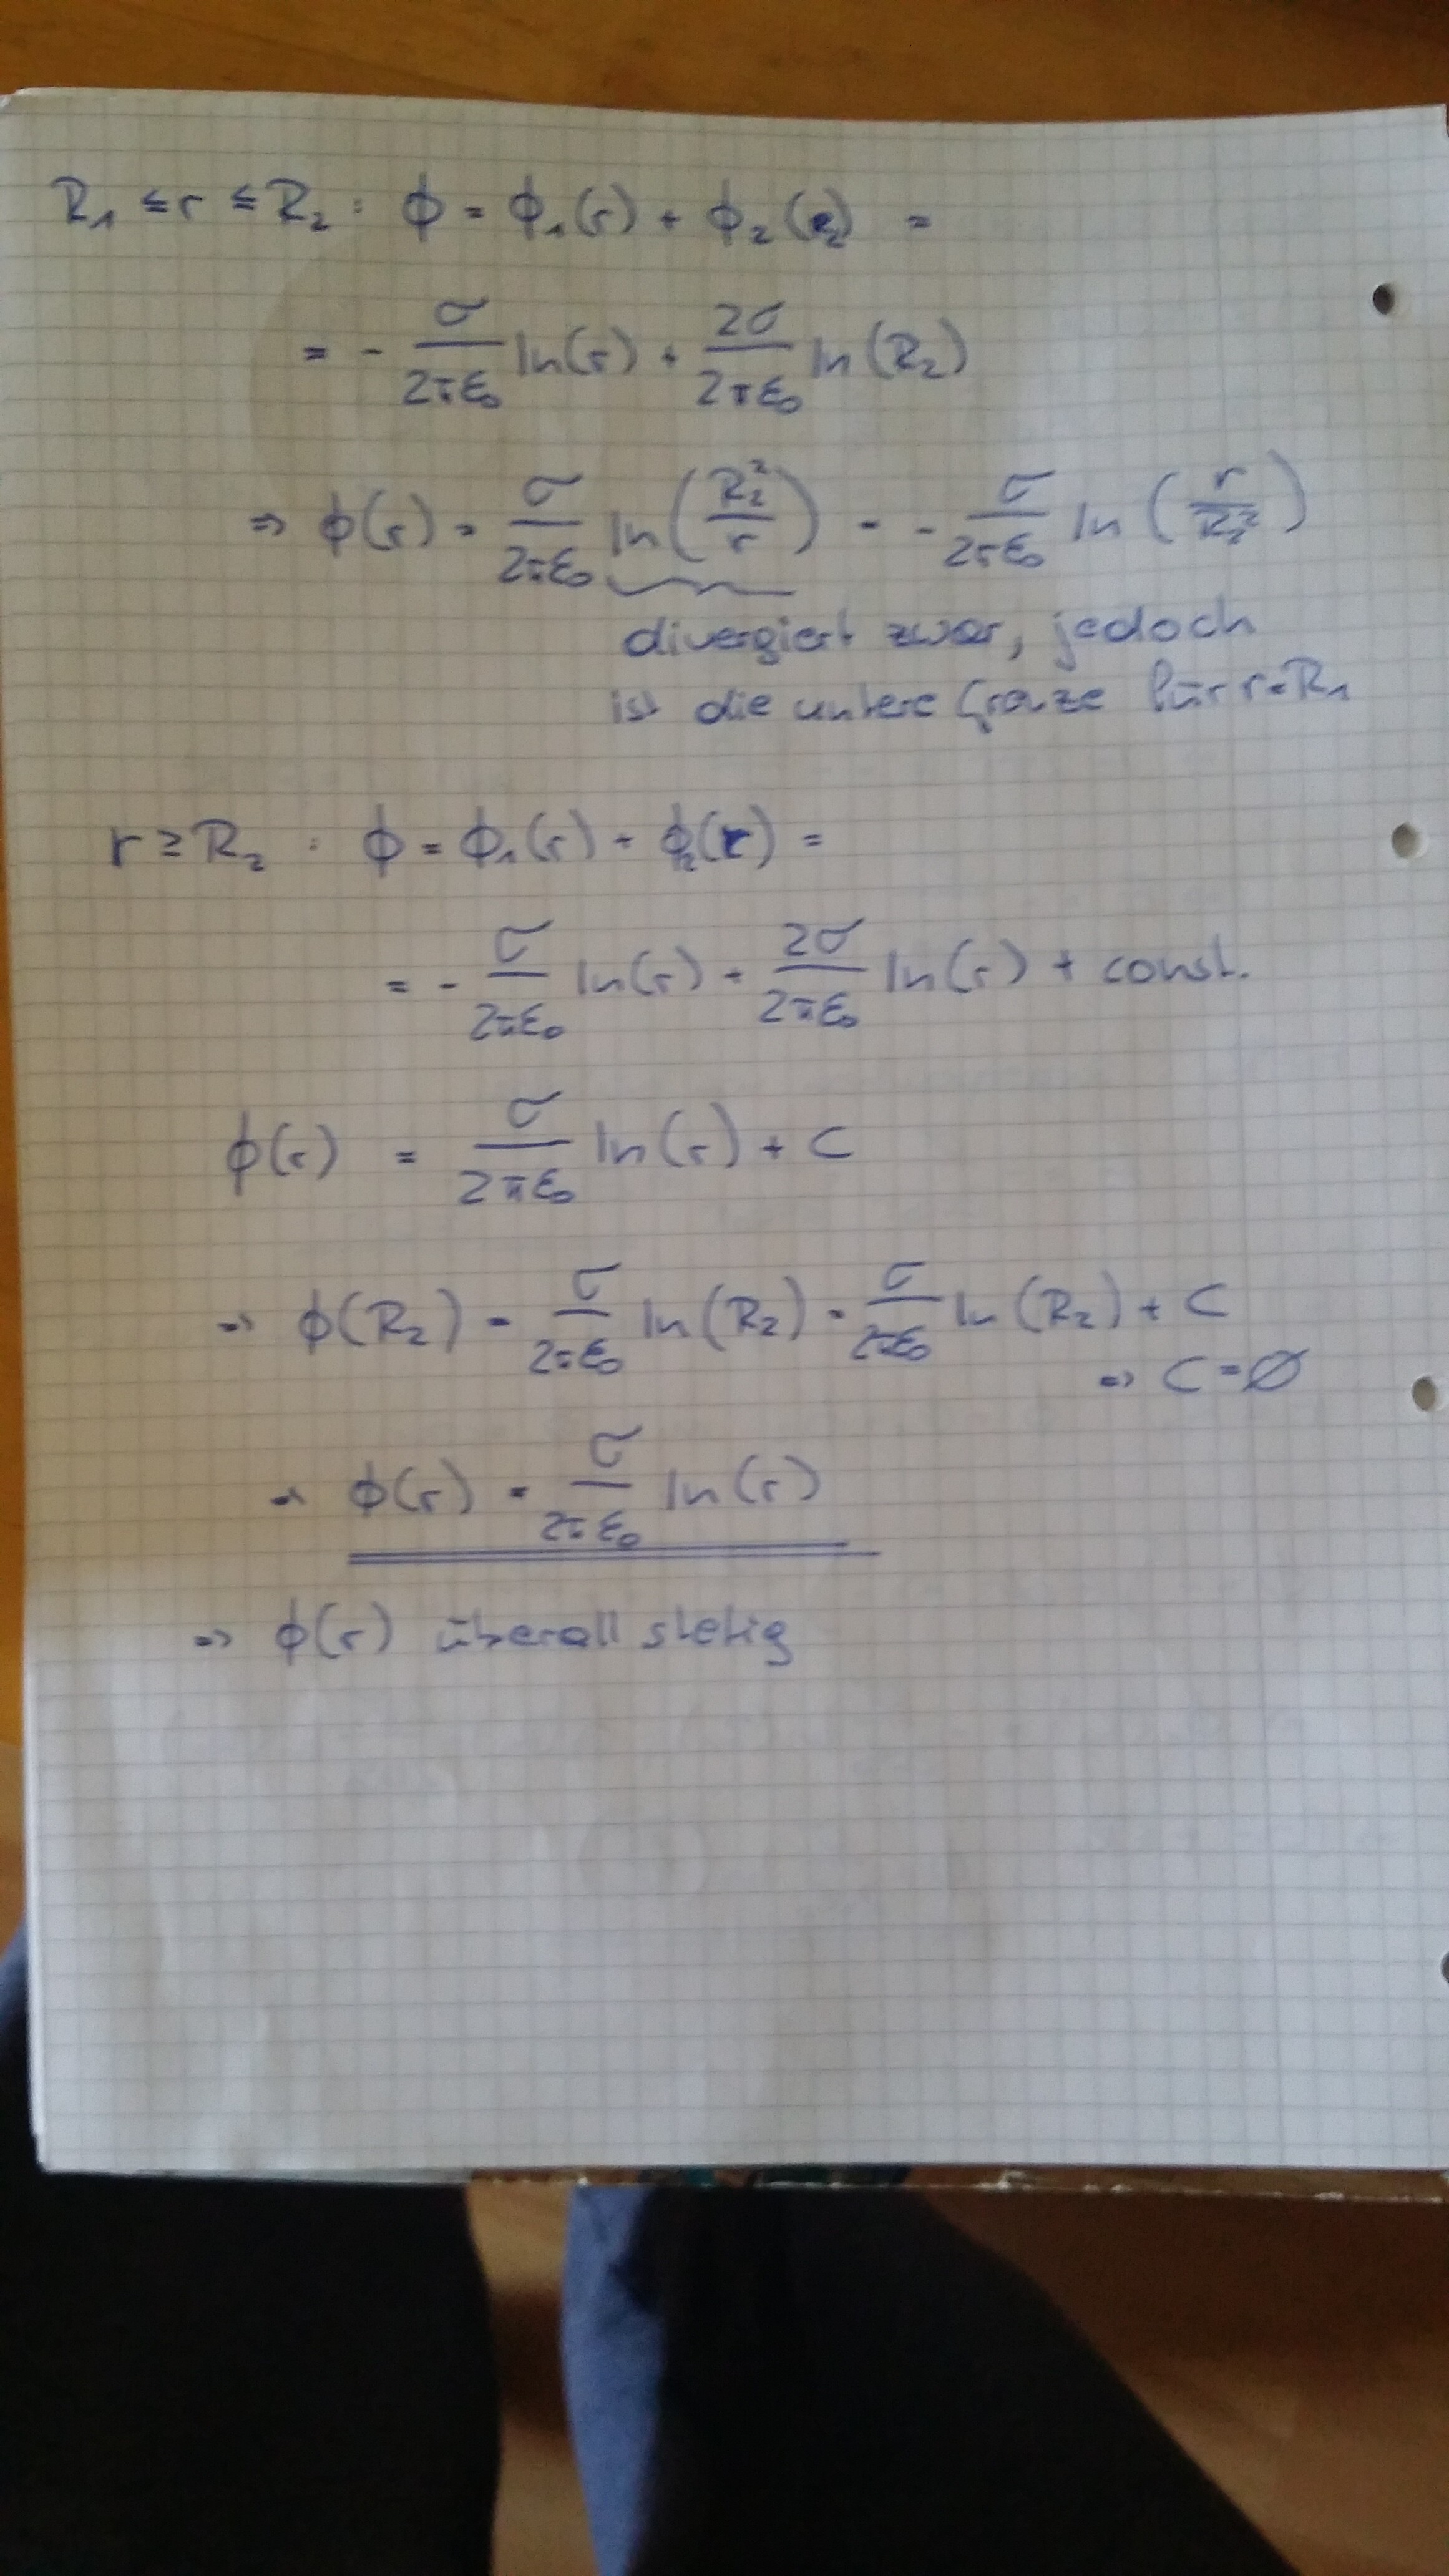 R₁ ≤ r ≤ R₂ : ϕ = ϕ₁(r) + ϕ₂(R₂) =
= - σ/(2πε₀) ln(r) + 2σ/(2πε₀) ln(R₂)
⇒ ϕ(r) = σ/(2πε₀) ln(R₂²/r) = - σ/(2πε₀) ln(r/R₂²)
divergiert zwar, jedoch
ist die untere Grenze für r=R₁
r ≥ R₂ : ϕ = ϕ₁(r) + ϕ₂(r) =
= - σ/(2πε₀) ln(r) + 2σ/(2πε₀) ln(r) + const.
ϕ(r) = σ/(2πε₀) ln(r) + C
⇒ ϕ(R₂) = σ/(2πε₀) ln(R₂) = σ/(2πε₀) ln(R₂) + C
⇒ C = Ø
⇒ ϕ(r) = σ/(2πε₀) ln(r)
⇒ ϕ(r) überall stetig